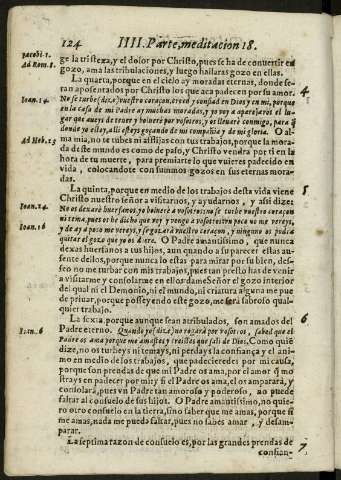 124 IIII. Parte, meditacion 18.
Iacobi. 1. ge la tristeza, y el dolor por Christo, pues se ha de conuertir en
Ad Rom. 8. gozo, ama las tribulaciones, y luego hallaras gozo en ellas.
La quarta, porque en el cielo ay moradas eternas, donde se-
ran aposentados por Christo los que aca padecen por su amor. 4
Ioan. 14. No se turbe (dize) vuestro coraçon, creed y confiad en Dios y en mi, porque
en la casa de mi Padre ay muchas moradas, y yo voy a aparejaros el lu-
gar que aueys de tener y boluerè por vosotros, y os lleuarè conmigo, para que
donde yo estoy, alli esteys gozando de mi compañia y de mi gloria. O al-
Ad Heb. 13 ma mia, no te turbes ni aflijas con tus trabajos, porque la mora-
da deste mundo es como de paso, y Christo vendra por ti en la
hora de tu muerte, para premiarte lo que vuieres padecido en
vida, colocandote con summos gozos en sus eternas mora-
das.
La quinta, porque en medio de los trabajos desta vida viene 5
Christo nuestro señor a visitarnos, y ayudarnos, y assi dize:
Ioan. 14. No os dexarè huerfanos, yo boluerè a vosotros; no se turbe vuestro coraçon
ni tema, pues os he dicho que voy y vengo a vosotros: vn poca no me vereys,
Ioan. 16 y de ay a poco me vereys, y se gozarà vuestro coraçon, y ninguno os podrà
quitar el gozo que yo os diere. O Padre amantissimo, que nunca
dexas huerfanos a tus hijos, aun quando a su parecer estas au-
sente dellos, porque nunca lo estas para mirar por su bien, des-
seo no me turbar con mis trabajos, pues tan presto has de venir
a visitarme y consolarme en ellos: dame Señor el gozo interior
del qual ni el Demonio, ni el mundo, ni criatura alguna me pue
de priuar, porque posseyendo este gozo, me serà sabroso qual-
quier trabajo.
La sexta porque aunque sean atribulados, son amados del 6
Ioan. 16 Padre eterno. Quando yo (dize) no rogarà por vosotros, sabed que el
Padre os ama porque me amastes y creistes que sali de Dios. Como quiē
dize, no os turbeys ni temays, ni perdays la confiança y el ani-
mo en medio de los trabajos, que padecieredes por mi causa,
porque son prendas de que mi Padre os ama, por el amor q̃ mo
strays en padecer por mi: y si el Padre os ama, el os ampararà, y
consolarà, pues vn Padre tan amoroso y poderoso, no puede
faltar al consuelo de sus hijos. O Padre amantissimo, no quie-
ro otro consuelo en la tierra, sino saber que me amas, porque si
me amas, nada me puede faltar, pues no sabes amar, y desam-
parar.
La septima razon de consuelo es, por las grandes prendas de 7
confian-